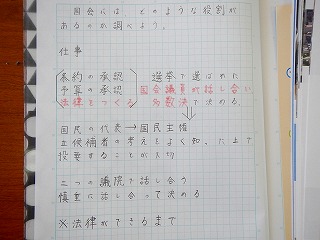 国会には どのような役割が
あるのか調べよう。
仕事
条約の承認 選挙で選ばれた
予算の承認 国会議員が話し合い
法律をつくる 多数決で決める。
国民の代表→国民主権
立候補者の考えをよく知った上で
投票することが大切
二つの議院で話し合う
慎重に話し合って決める
※法律ができるまで